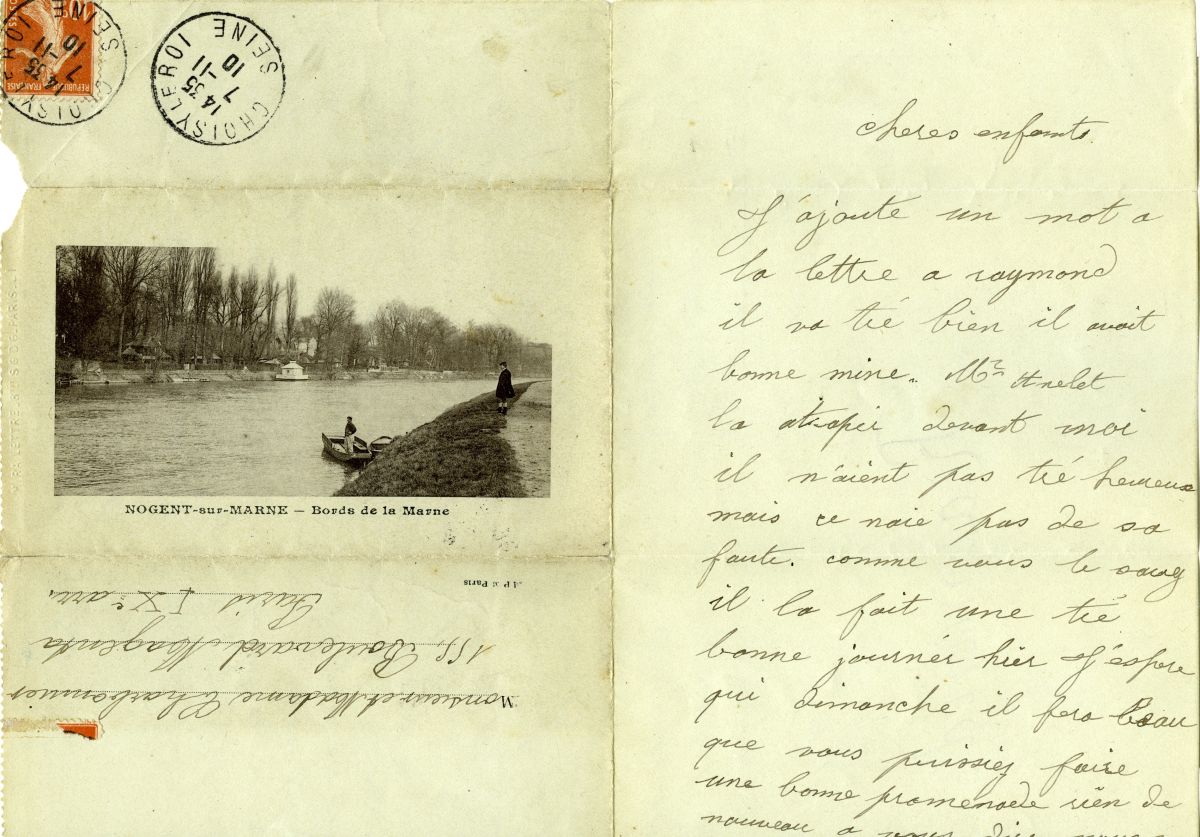 CHOISY LE ROI
14 35
7 -11
10
SEINE
CHOISY LE ROI
14 35
7 -11
10
SEINE
NOGENT-sur-MARNE — Bords de la Marne
A P Paris
Monsieur et Madame Charbonnier
155, Boulevard Magenta
Paris IXe arr.
cheres enfants.
J'ajoute un mot a
la lettre a raymond
il va tré bien il avait
bonne mine. Mr
la devant moi
il n'aient pas tré heureux
mais ce naie pas de sa
faute. comme vous le savez
il la fait une tré
bonne journér hier J'espere
qui dimanche il fera beau
que vous puissiez faire
une bonne promenade rien de
nouveau a vous dire